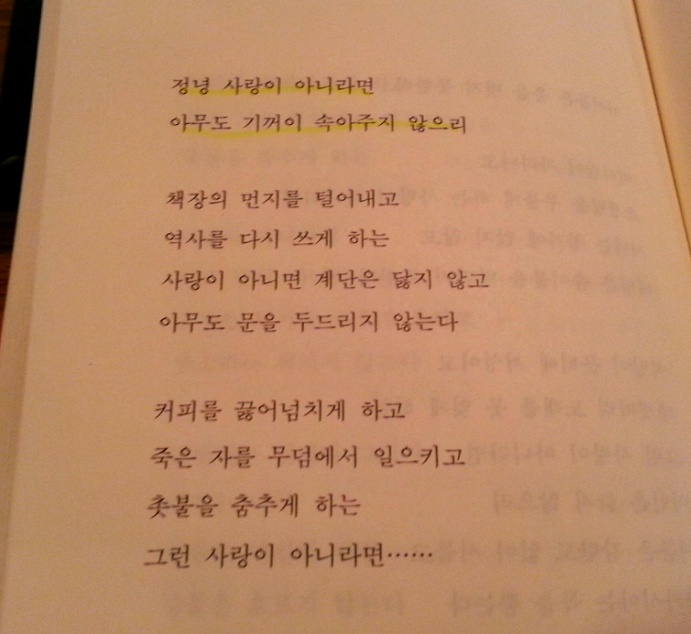 정녕 사랑이 아니라면
아무도 기꺼이 속아주지 않으리
책장의 먼지를 털어내고
역사를 다시 쓰게 하는
사랑이 아니면 계단은 닳지 않고
아무도 문을 두드리지 않는다
커피를 끓어넘치게 하고
죽은 자를 무덤에서 일으키고
촛불을 춤추게 하는
그런 사랑이 아니라면……